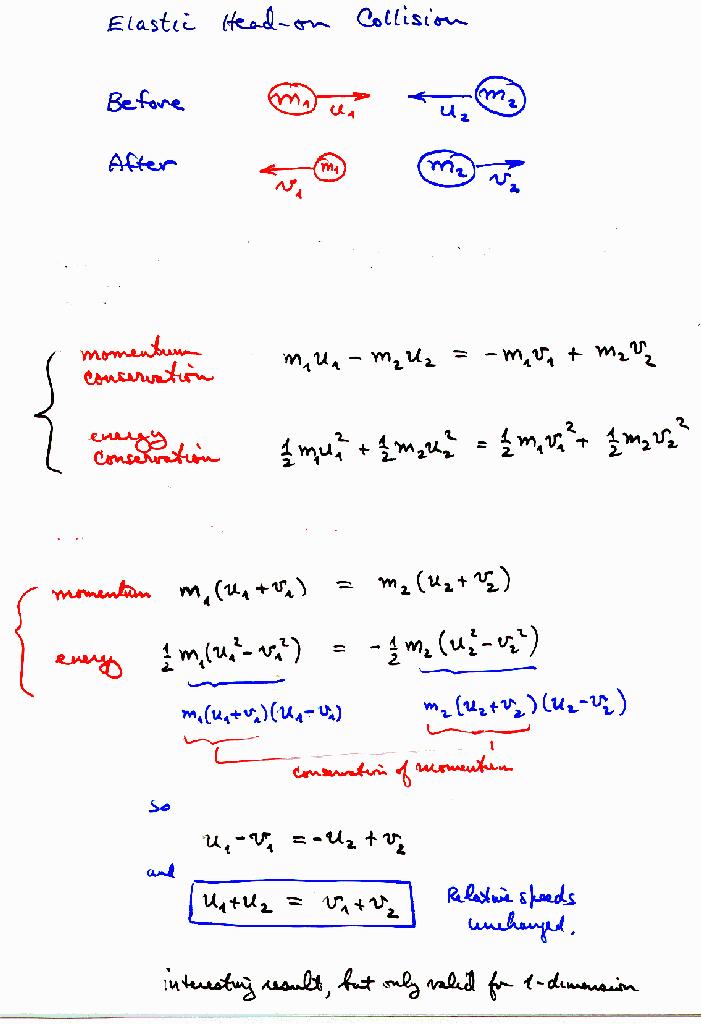 Elastic Head-on Collision
Before m₁ u₁ u₂ m₂
After v₁ m₁ m₂ v₂
momentum conservation m₁u₁ - m₂u₂ = -m₁v₁ + m₂v₂
energy conservation ½m₁u₁² + ½m₂u₂² = ½m₁v₁² + ½m₂v₂²
momentum m₁(u₁+v₁) = m₂(u₂+v₂)
energy ½m₁(u₁²-v₁²) = -½m₂(u₂²-v₂²)
m₁(u₁+v₁)(u₁-v₁) m₂(u₂+v₂)(u₂-v₂)
conservation of momentum
so
u₁-v₁ = -u₂+v₂
and
u₁+u₂ = v₁+v₂ Relative speeds
unchanged.
interesting result, but only valid for 1-dimension